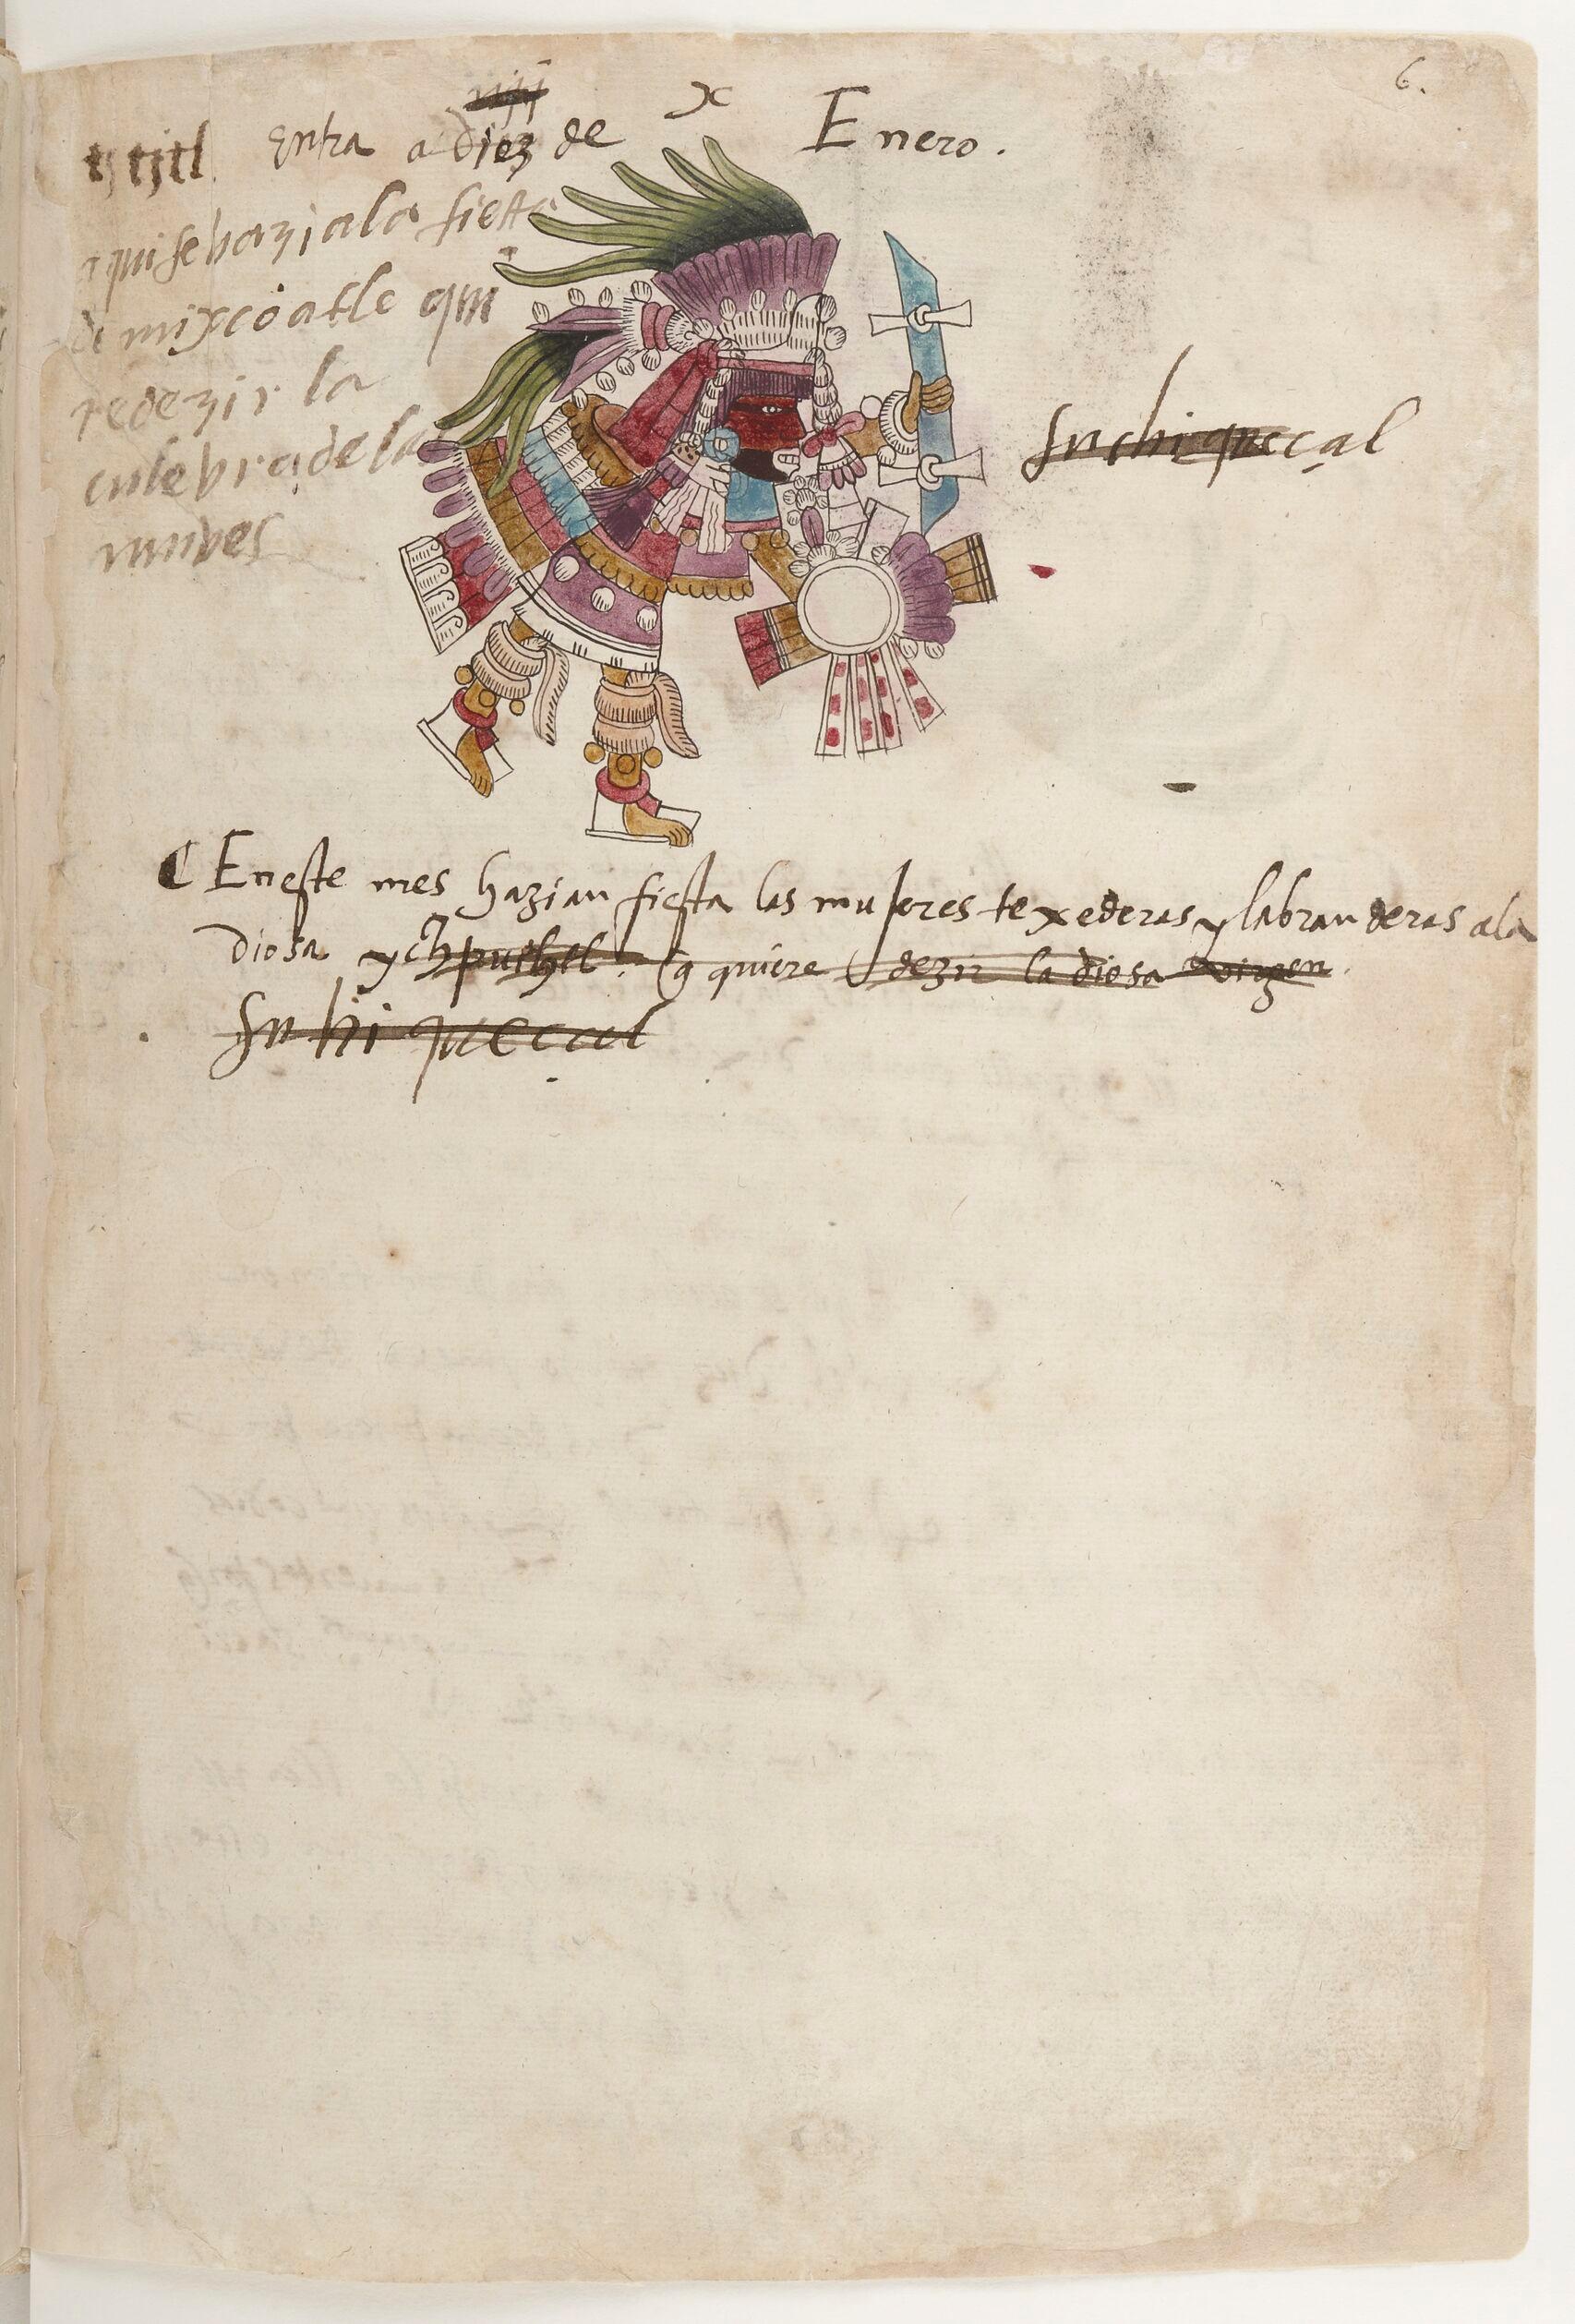 6.
nıjj
x
tjtjtl Entra a diez de Enero.
aqui se hazia la fiesta
de mixcoatle qui
re dezir la
culebra de las
nuves
Suchiqueçal
En este mes hazian fiesta las mujeres texederas y labranderas ala
diosa ychpuchtl. q quiere dezir la diosa virgen.
Suhiqueçal